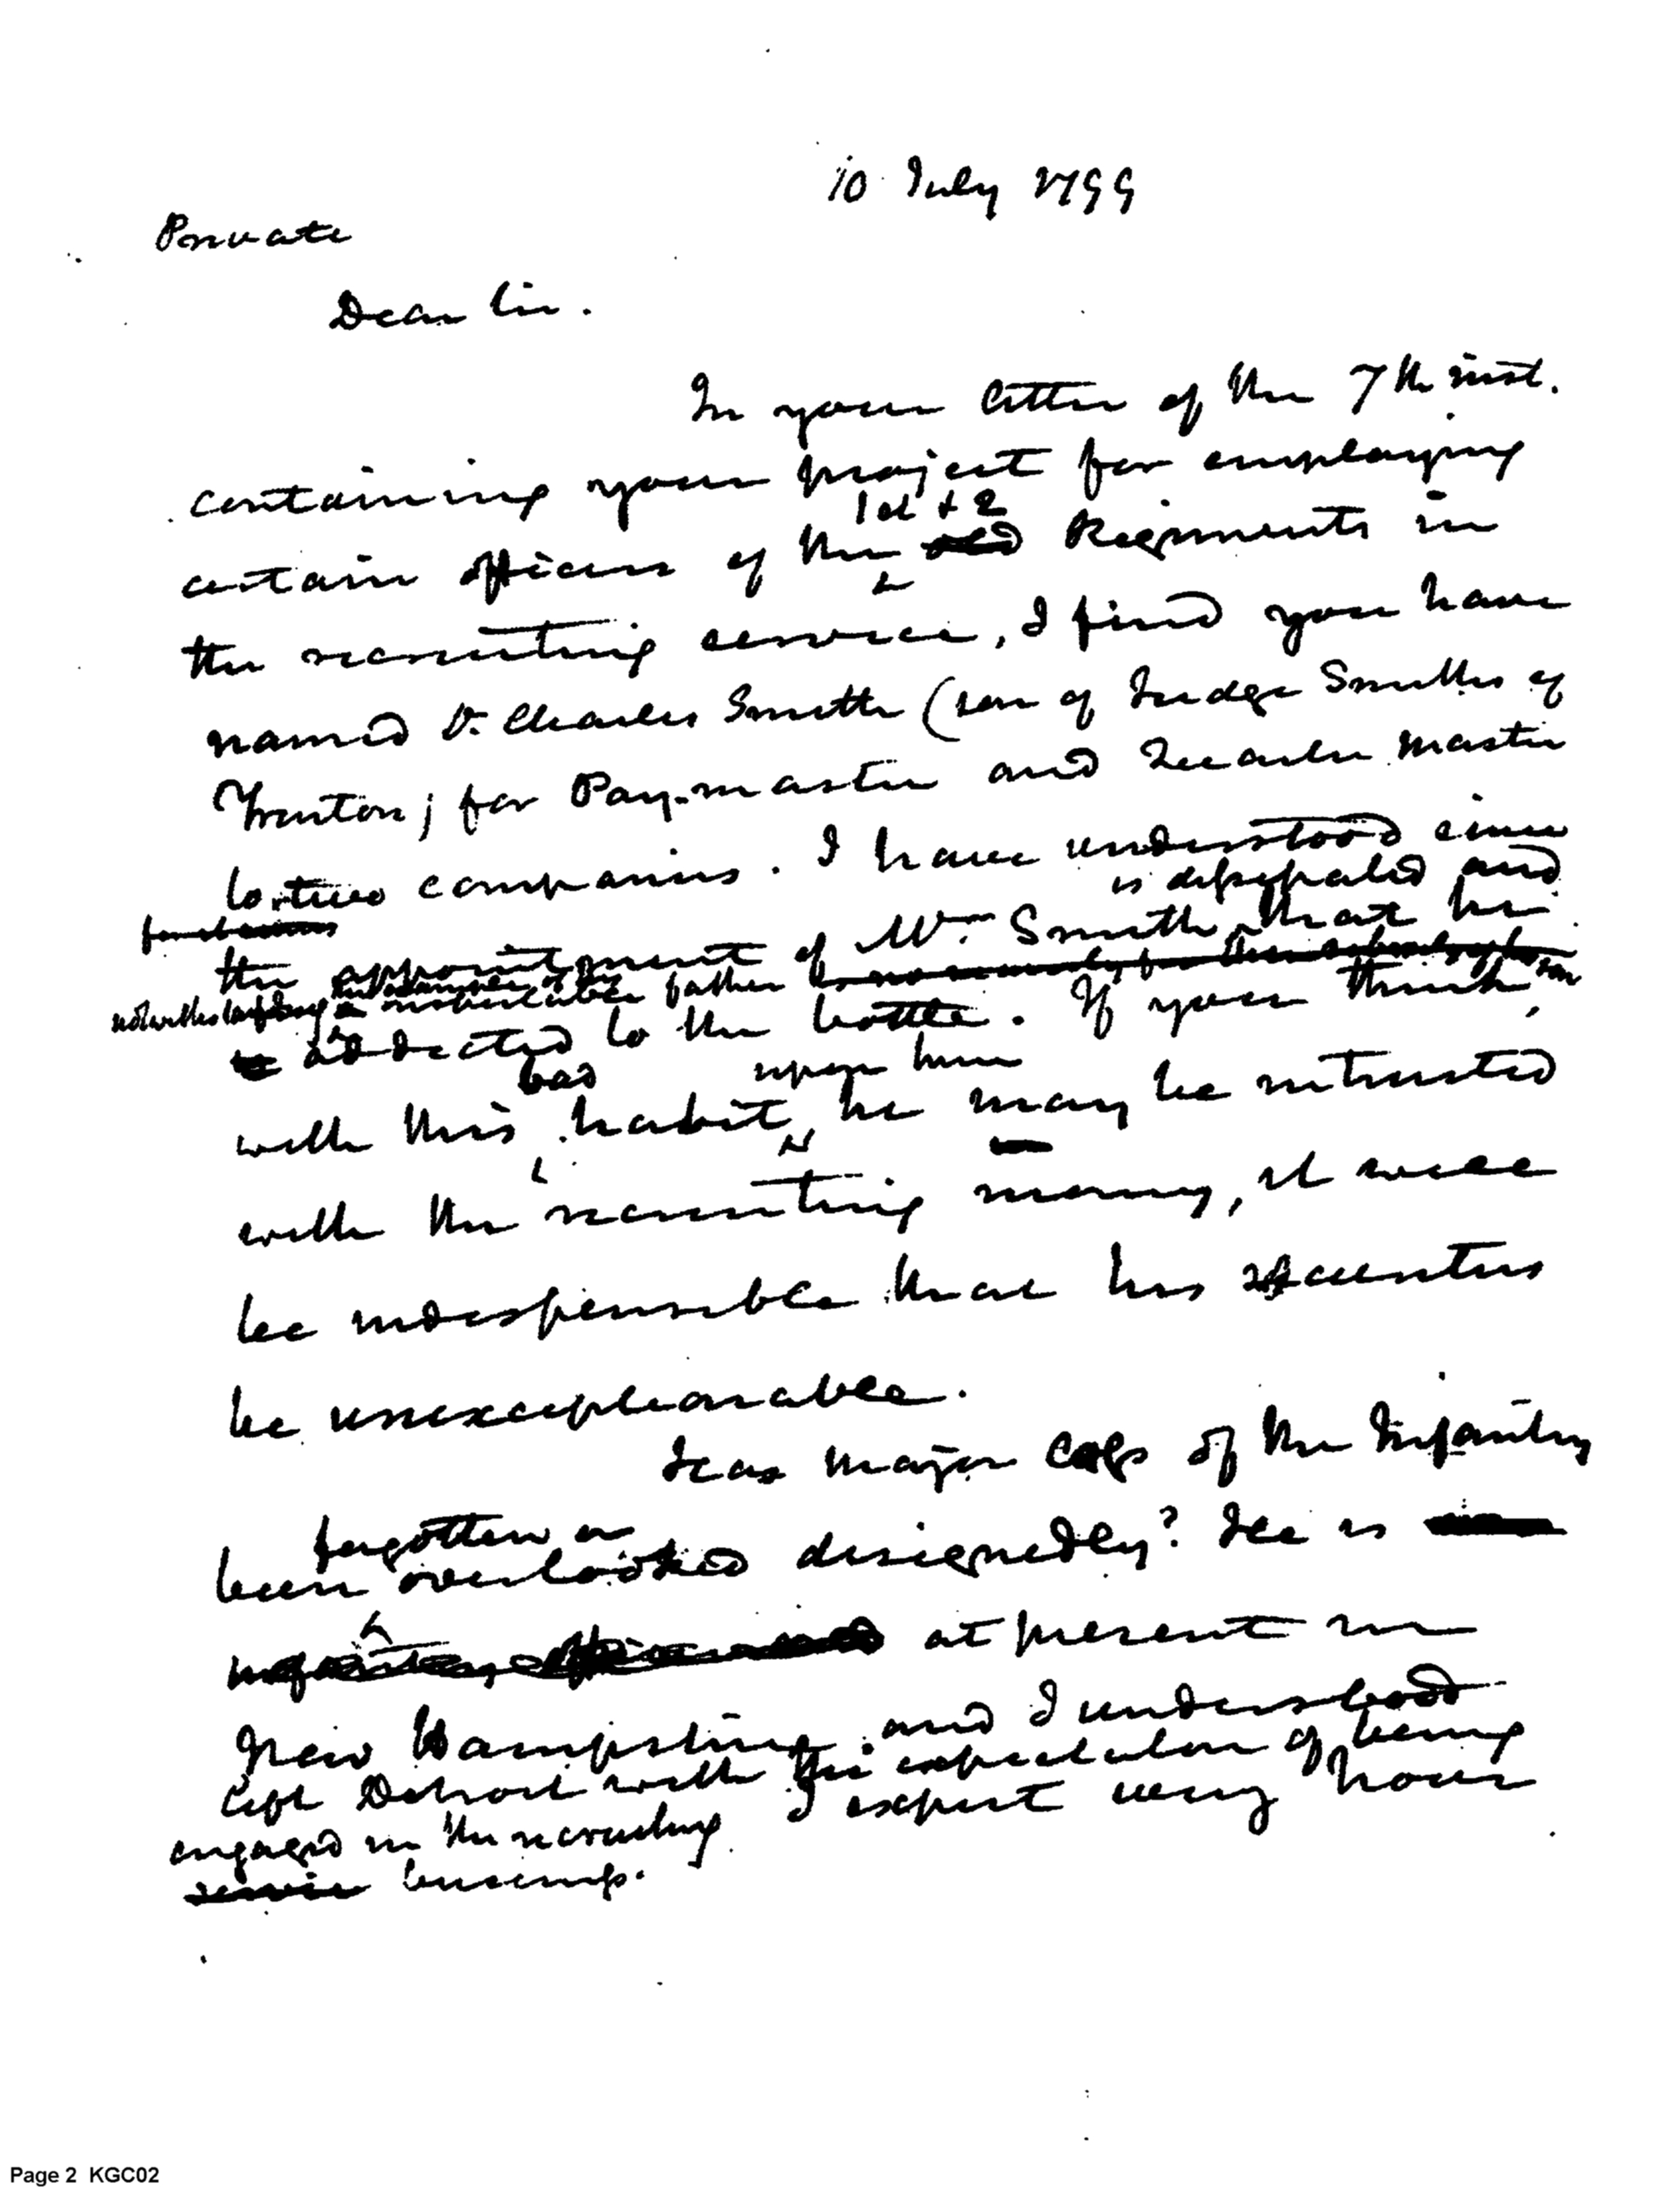 10 July 1799
Private
Dear Sir.
In your letter of the 7th inst.
containing your project for employing
1st & 2
certain officers of the old Regiments in
the recruiting service, I find you have
named D. Charles Smith (son of Judge Smith of
Trenton) for Pay-master and Quarter master
to two companies. I have understood since
is dissipated and
the appointment of Mr. Smith that he
notwithstanding respectable father
addicted to the bottle. If you think,
bad upon him
with this habit, he may be intrusted
with the recruiting money, it will
be indispensible that his
be unexceptionable.
Has Major Cass of the Infantry
forgotten or
been overlooked designedly? He is
at present in
New Hampshire and I understood
left Detroit with the expectation of being
engaged in the recruiting I expect every hour
service business.
Page 2 KGC02